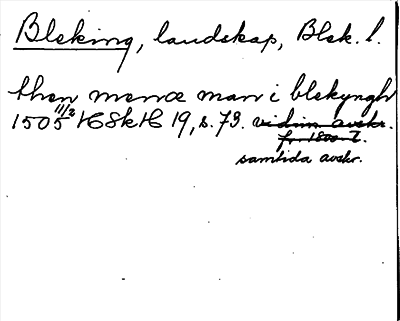 Bleking, landskap, Blek. l.
then menoe man i blekyngh
1505 11/2 HSkH 19, s. 73. vidim avskr.
fr. 1500-t.
samtida avskr.